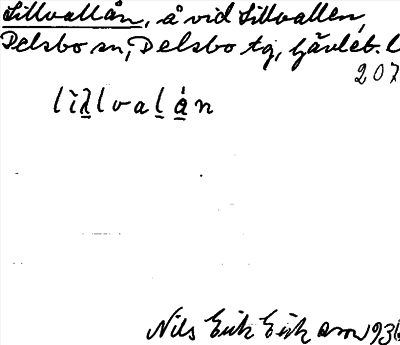 Lillvallån, å vid Lillvallen,
Delsbo sn, Delsbo tg, Gävleb. l
207
lìλ̲lval̲á̲n
Nils Erik Eriksson 1936